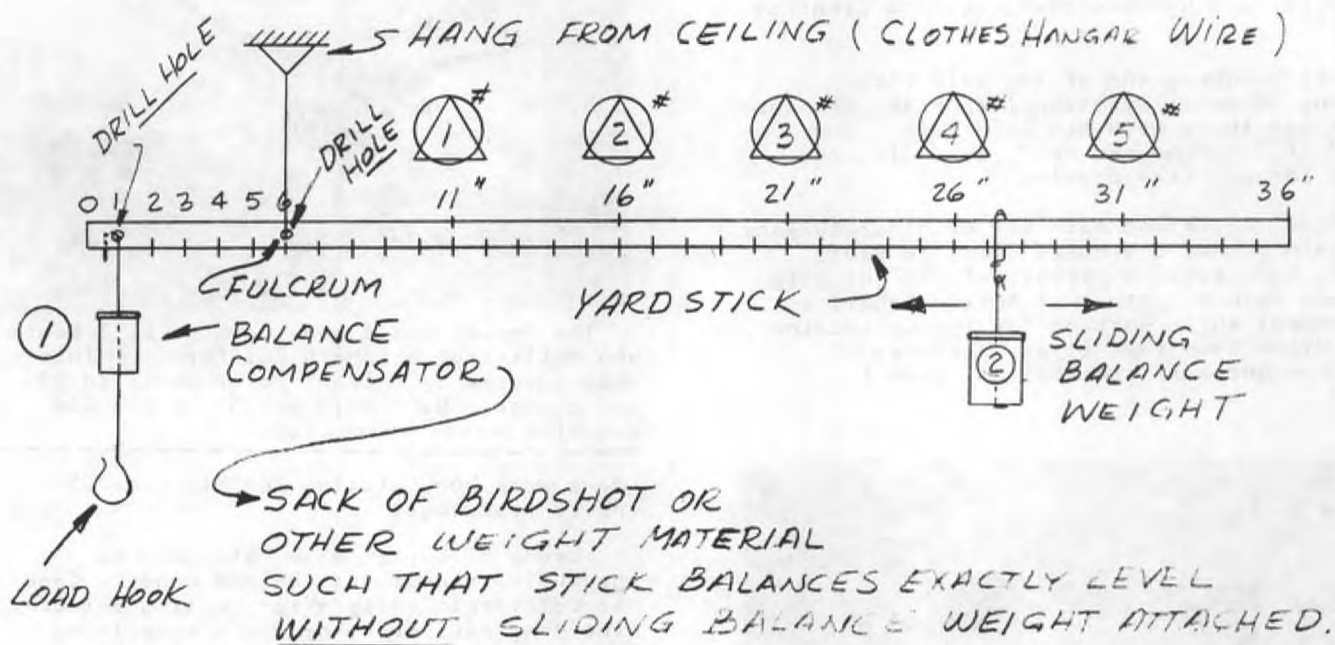 HANG FROM CEILING ( CLOTHES HANGAR WIRE )
DRILL HOLE
DRILL
HOLE
1 #
2 #
3 #
4 #
5 #
0 1 2 3 4 5 6 11" 16" 21" 26" 31" 36"
FULCRUM
YARDSTICK
1
BALANCE
COMPENSATOR
2
SLIDING
BALANCE
WEIGHT
LOAD HOOK
SACK OF BIRDSHOT OR
OTHER WEIGHT MATERIAL
SUCH THAT STICK BALANCES EXACTLY LEVEL
WITHOUT SLIDING BALANCE WEIGHT ATTACHED.